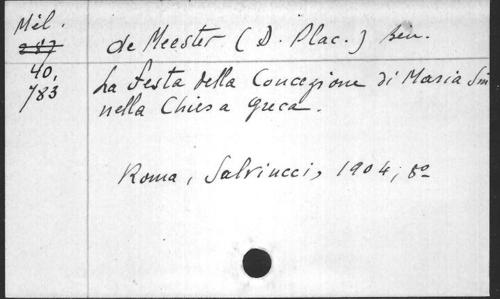 Mél.
287
40,
783
de Meester (D. Plac.) ben.
La Festa della Concezione di Maria Sm
nella Chiesa greca.
Roma, Salviucci, 1904, 8º